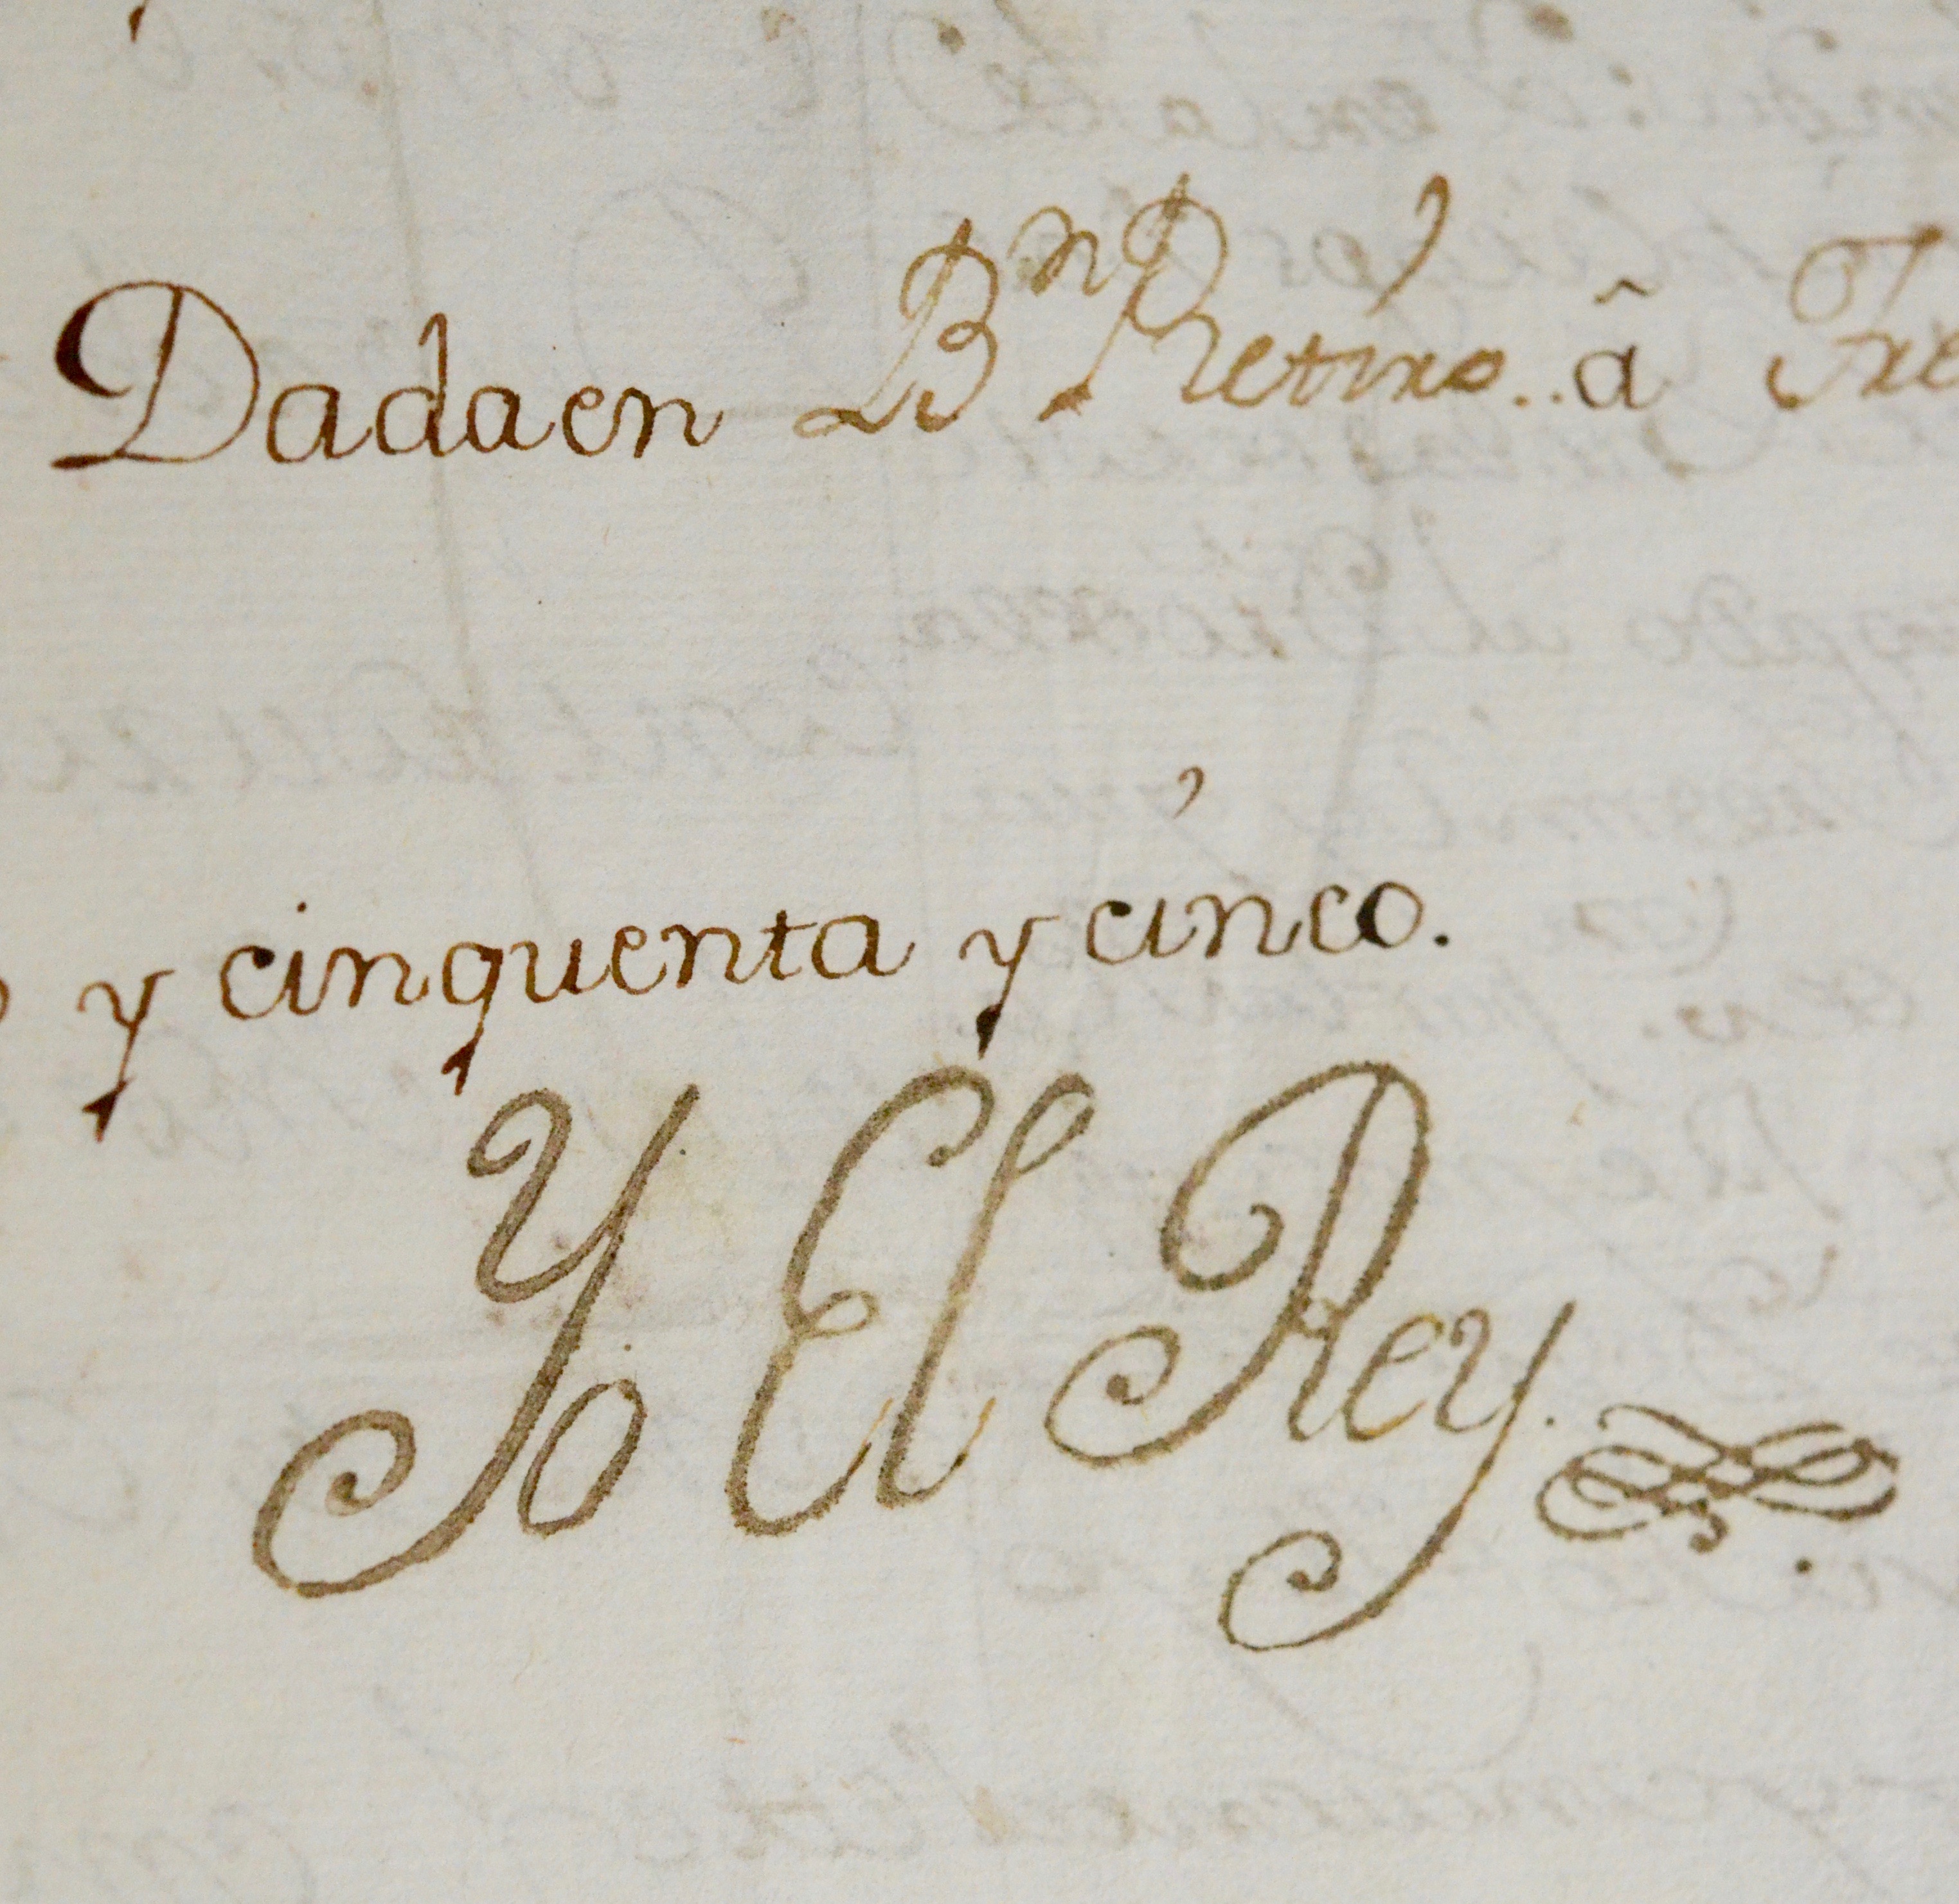 Dada en Bn Retiro.. â Tre
y cinquenta y cinco.
Yo El Rey.